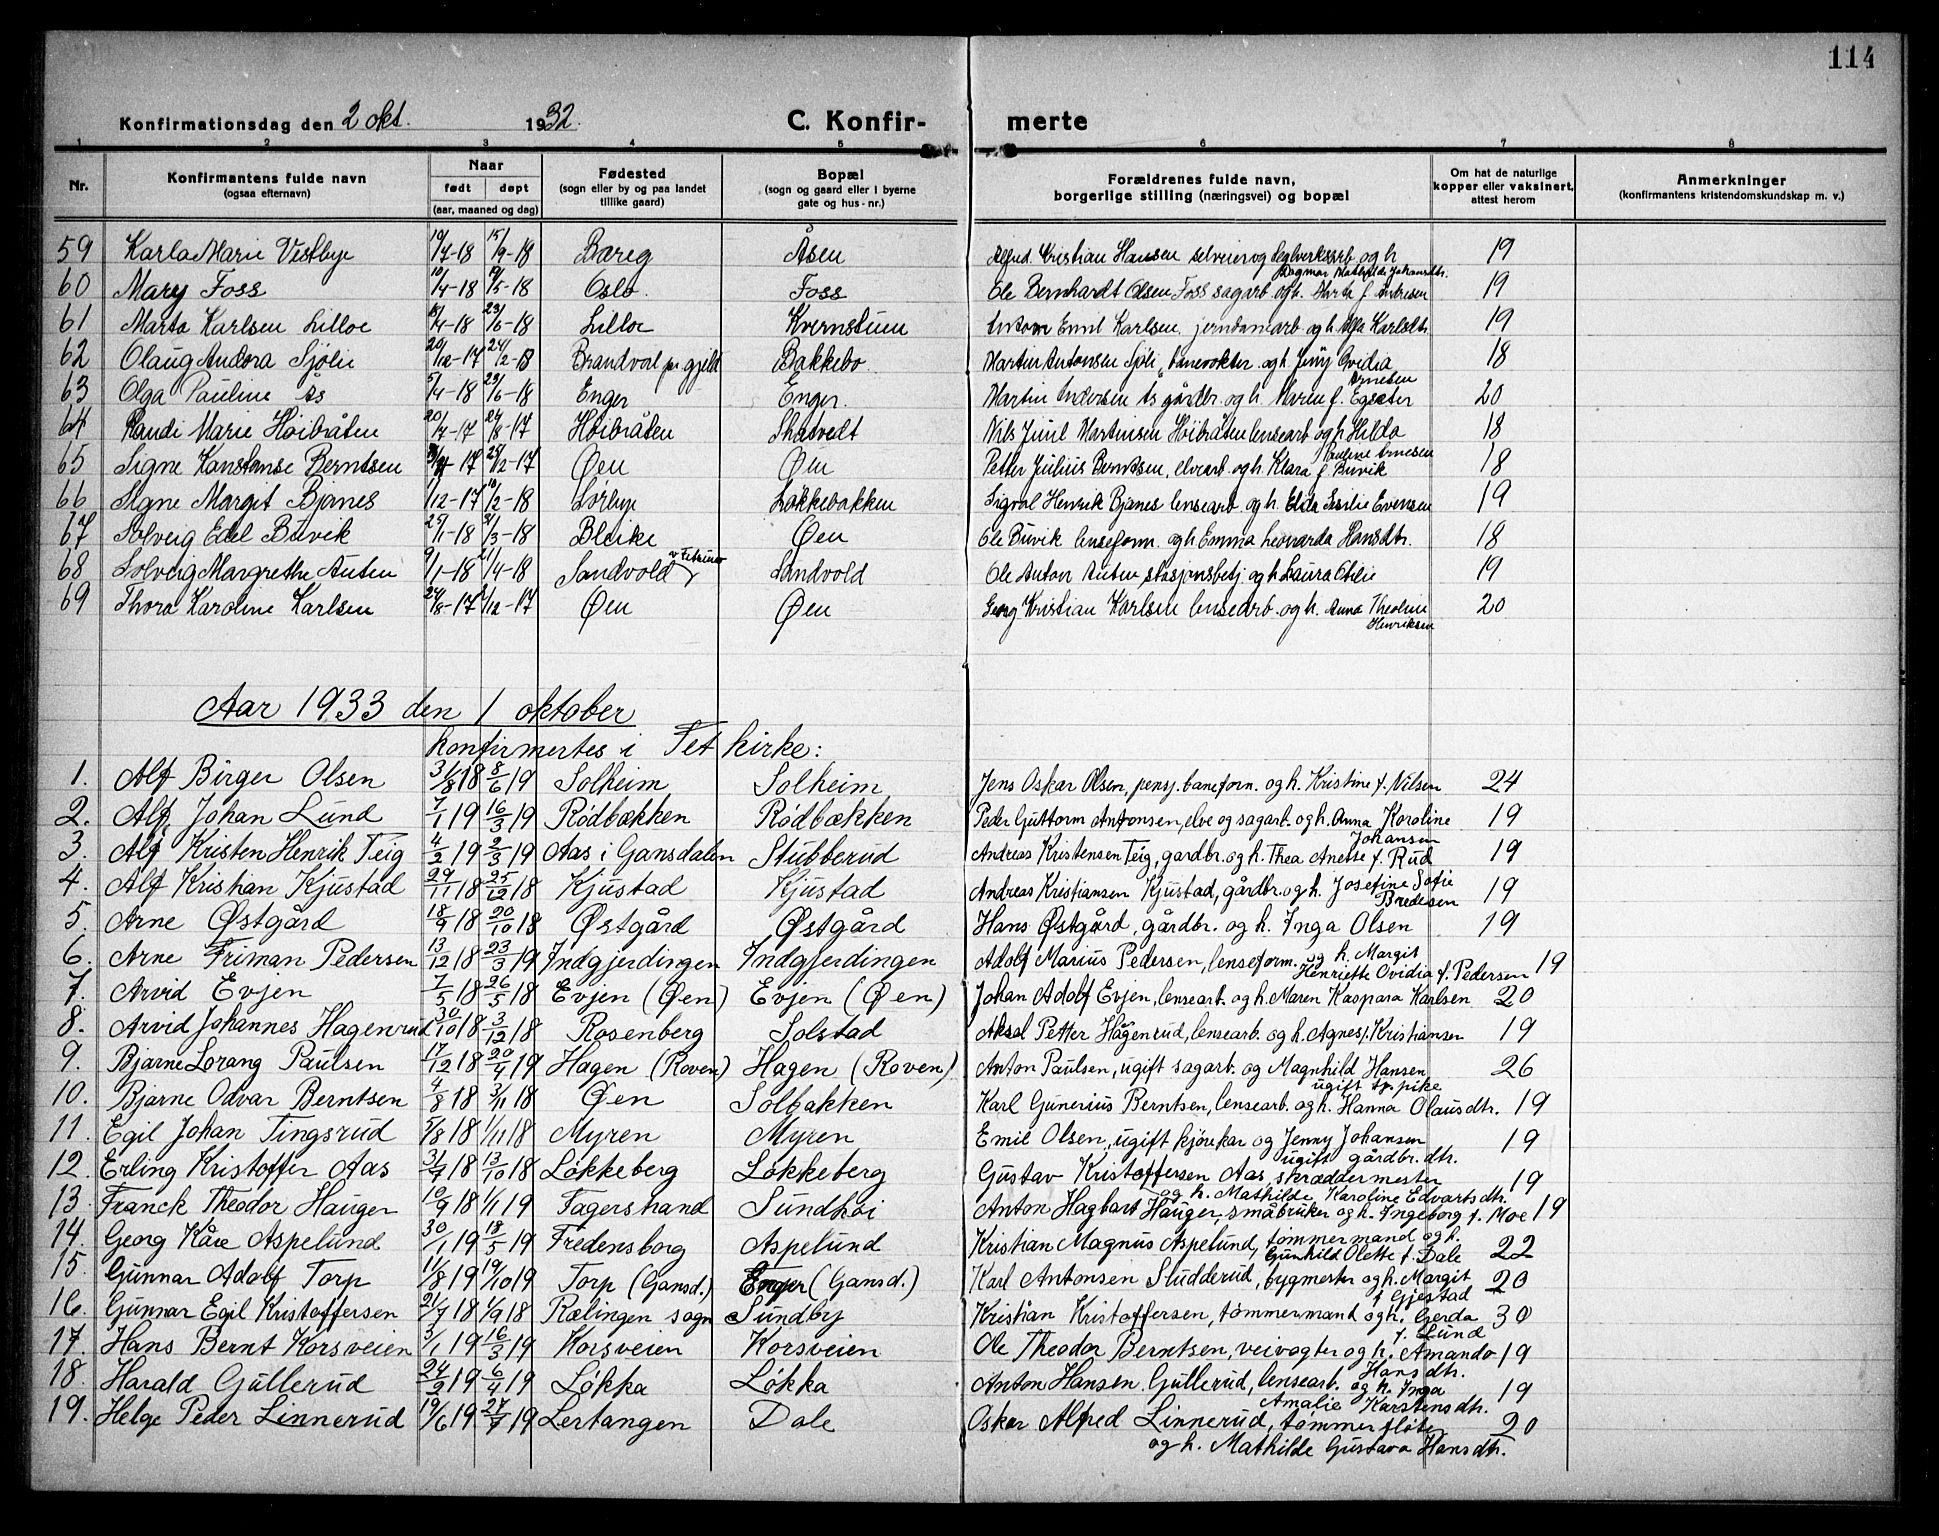 114
Konfirmationsdag den 2 okt. 1932. C. Konfir- merte
1 2 3 4 5 6 7 8
Nr. Konfirmantens fulde navn (ogsaa efternavn) Naar født døpt (aar, maaned og dag) Fødested (sogn eller by og paa landet tillike gaard) Bopæl (sogn og gaard eller i byerne gate og hus-nr.) Forældrenes fulde navn, borgerlige stilling (næringsvei) og bopæl Om hat de naturlige kopper eller vaksinert, attest herom Anmerkninger (konfirmantens kristendomskundskap m. v.)
59 Karla Marie Vestbye 19/7-18 15/9-18 Bareg Åsen Alfred Kristian Hansen selveier og teglverksarb og h Dagmar Mathilde Johansdtr. 19
60 Mary Foss 10/4-18 19/5-18 Oslo. Foss Ole Bernhardt Olsen Foss sagarb. og h. Marta f. Antresen 19
61 Marta Karlsen Lilloe /4-18 23/6-18 Lilloe Kvernstuen Anton Emil Karlsen jerndamarb og h. Alfa Karlsdtr. 19
62 Olaug Andora Sjølie 20/12-17 24/2-18 Brandval pr gjeld Bakkebo Martin Antonsen Sjøli, banevokter og h. Jenny Ovidia 18
63 Olga Pauline Ås 5/4-18 23/6-18 Enger Enger. Martin Andersen Ås gårdbr. og h. Maren f. Egsæter Arnesen 20
64 Randi Marie Høibråten 20/7-17 24/8-17 Høibråten Skatvedt Nils Juul Martinsen Høibråten lensearb og h Hilda 18
65 Signe Konstanse Berntsen 17 25/12-17 Øen Øen Petter Julius Berntsen, elvearb. og h. Klara f. Buvik Pauline Arnesen 18
66 Signe Margit Bjanes /12-17 10/2-18 Lørbye Løkkebakken Sigval Henrik Bjanes lensearb og h. Elida Sesilie Evensen 19
67 Solveig Edel Buvik 25/1-18 /3-18 Bleike Øen Ole Buvik lenseform. og h Emma Leonarda Hansdtr. 18
68 Solveig Margrethe Auten 9/1-18 21/4-18 Sandvold v Fetsund Sandvold Ole Anton Auten stasjonsbetj. og h Laura Otilie 19
69 Thora Karoline Karlsen 24/8-17 2/12-17 Øen Øen Georg Kristian Karlsen lensearb. og h. Anna Theoline Henriksen 20
Aar 1933 den 1 oktober
konfirmertes i Fet kirke:
1. Alf Birger Olsen 31/8 18 8/6 19 Solheim Solheim Jens Oskar Olsen, pensj. baneform. og h. Kristine f. Nilsen 24
2. Alf Johan Lund 7/1 19 16/3 19 Rødbækken Rødbækken Peder Guttorm Antonsen, elve og sagarb. og h. Anna Karoline Johansen 19
3. Alf Kristen Henrik Teig 4/2 19 2/3 19 Aas i Gansdalen Stubberud Andreas Kristensen Teig, gardbr. og h. Thea Anette f. Rud 19
4. Alf Kristian Kjustad 29/11 18 25/12 18 Kjustad Kjustad Andreas Kristiansen Kjustad, gårdbr. og h. Josefine Sofie Bredesen 19
5. Arne Østgård 18/9 18 20/10 18 Østgård Østgård Hans Østgård, gårdbr. og h. Inga Olsen 19
6. Arne Friman Pedersen 13/12 18 23/3 19 Indgjerdingen Indgjerdingen Adolf Marius Pedersen, lenseform. og h. Margit Henriette Ovidia f. Pedersen 19
7. Arvid Evjen 7/5 18 26/5 18 Evjen (Øen) Evjen (Øen) Johan Adolf Evjen, lensearb. og h. Maren Kaspara Karlsen 20
8. Arvid Johannes Hagenrud 30/10 18 3/12 18 Rosenberg Solstad Aksel Petter Hagenrud, lensearb. og h. Agnes f. Kristiansen 19
9. Bjarne Lorang Paulsen 17/12 18 20/4 19 Hagen (Roven) Hagen (Roven) Anton Paulsen, ugift sagarb. og Magnhild Hansen ugift tj. pike 26
10. Bjarne Odvar Berntsen 4/8 18 3/11 18 Øen Solbakken Karl Gunerius Berntsen, lensearb. og h. Hanna Olausdtr. 19
11. Egil Johan Tingsrud 5/8 18 1/11 18 Myren Myren Emil Olsen, ugift kjørekar og Jenny Johansen ugift gårdbr. dtr. 19
12. Erling Kristoffer Aas 31/7 18 13/10 18 Løkkeberg Løkkeberg Gustav Kristoffersen Aas, skræddermester og h. Mathilde Karoline Edvartsdtr. 19
13. Franck Theodor Hauger 10/9 18 1/1 19 Fagerstrand Sundhøi Anton Hagbart Hauger, småbruker og h. Ingeborg f. Moe 19
14. Georg Kåre Aspelund 30/1 19 18/5 19 Fredensborg Aspelund Kristian Magnus Aspelund, tømmermand og h. Gunhild Olette f. Dale 22
15. Gunnar Adolf Torp 11/8 19 19/10 19 Torp (Gansd.) Enger (Gansd.) Karl Antonsen Studderud, bygmester og h. Margit f Gjestad 20
16. Gunnar Egil Kristoffersen 21/7 18 1/9 18 Rælingen sogn Sundby Kristian Kristoffersen, tømmermand og h. Gerda f. Lund 30
17. Hans Bernt Korsveien 3/1 19 16/3 19 Korsveien Korsveien Ole Theodor Berntsen, veivogter og h. Amanda Hansdtr. 19
18. Harald Gullerud 24/2 19 6/4 19 Løkka Løkka Anton Hansen Gullerud, lensearb. og h. Inga Amalie Karstensdtr. 19
19. Helge Peder Linnerud 19/6 19 27/7 19 Lertangen Dale Oskar Alfred Linnerud, tømmerfløter og h. Mathilde Gustava Hansdtr. 20